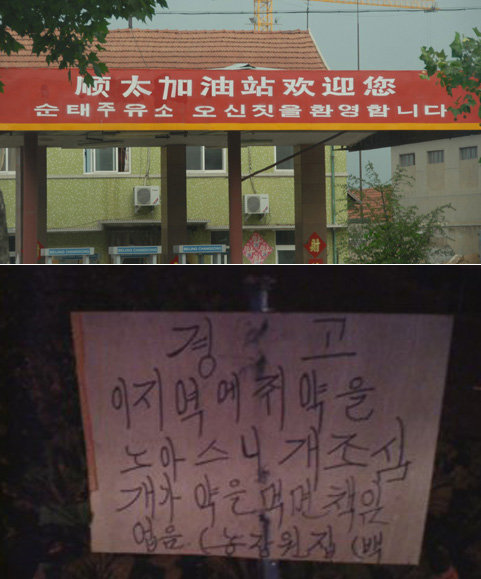 顺太加油站欢迎您
순태주유소 오신짓을환영합니다
BEIJING CHANGGONG
財
경 고
이지역에 쥐약을
노아스니 개조심
개가 약을먹면책임
없음. (농장원집 (백